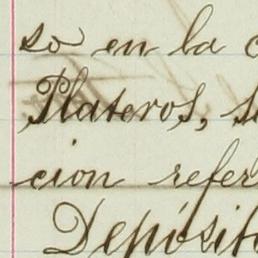 so en la
Plateros, s
cion refer
Depósito